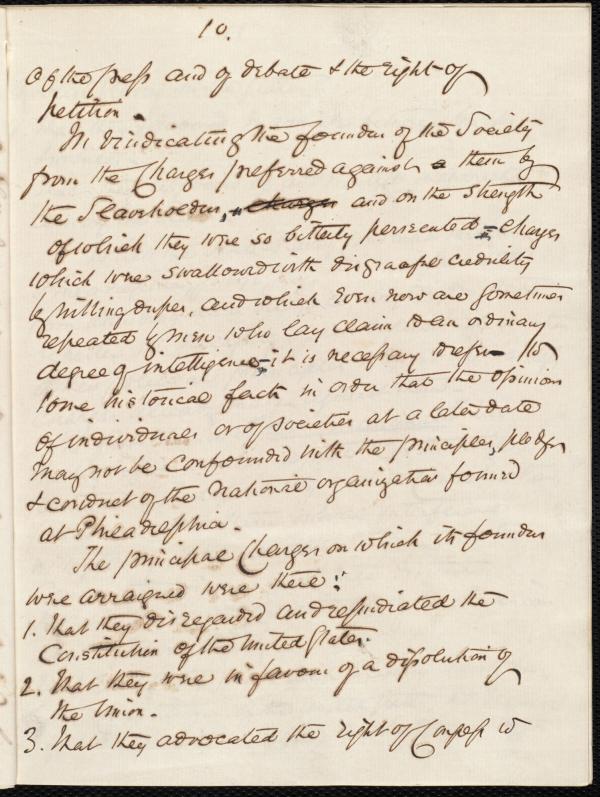 10.
of the press and of debate & the right of
petition.
In vindicating the founders of the Society
from the Charges preferred against them by
the Slaveholders, charges and on the strength
of which they were so bitterly persecuted - charges
which were swallowed with disgraceful credulity
by willing dupes, and which even now are sometimes
repeated by men who lay claim to an ordinary
degree of intelligence, it is necessary to refer to
some historical facts in order that the opinions
of individuals or of societies at a later date
may not be confounded with the principles, pledges
& conduct of the National organization formed
at Philadelphia.
The principal Charges on which its founders
were arraigned were these:
1. That they disregarded and repudiated the
Constitution of the United States.
2. That they were in favour of a dissolution of
the Union.
3. That they advocated the right of Congress to